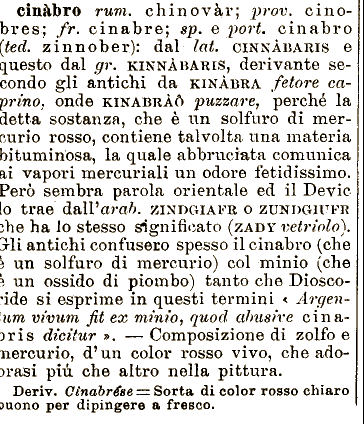 cinàbro rum. chinovàr; prov. cino-
bres; fr. cinabre; sp. e port. cinabro
(ted. zinnober): dal lat. CINNÀBARIS e
questo dal gr. KINNÀBARIS, derivante se-
condo gli antichi da KINÀBRA fetore ca-
prino, onde KINABRÀÔ puzzare, perché la
detta sostanza, che è un solfuro di mer-
curio rosso, contiene talvolta una materia
bituminosa, la quale abbruciata comunica
ai vapori mercuriali un odore fetidissimo.
Però sembra parola orientale ed il Devic
lo trae dall'arab. ZINDGIAFR O ZUNDGIUFR
che ha lo stesso significato (ZADY vetriolo).
Gli antichi confusero spesso il cinabro (che
è un solfuro di mercurio) col minio (che
è un ossido di piombo) tanto che Diosco-
ride si esprime in questi termini « Argen-
tum vivum fit ex minio, quod abusive cina-
bris dicitur ». — Composizione di zolfo e
mercurio, d'un color rosso vivo, che ado-
prasi piú che altro nella pittura.
Deriv. Cinabrése = Sorta di color rosso chiaro
buono per dipingere a fresco.